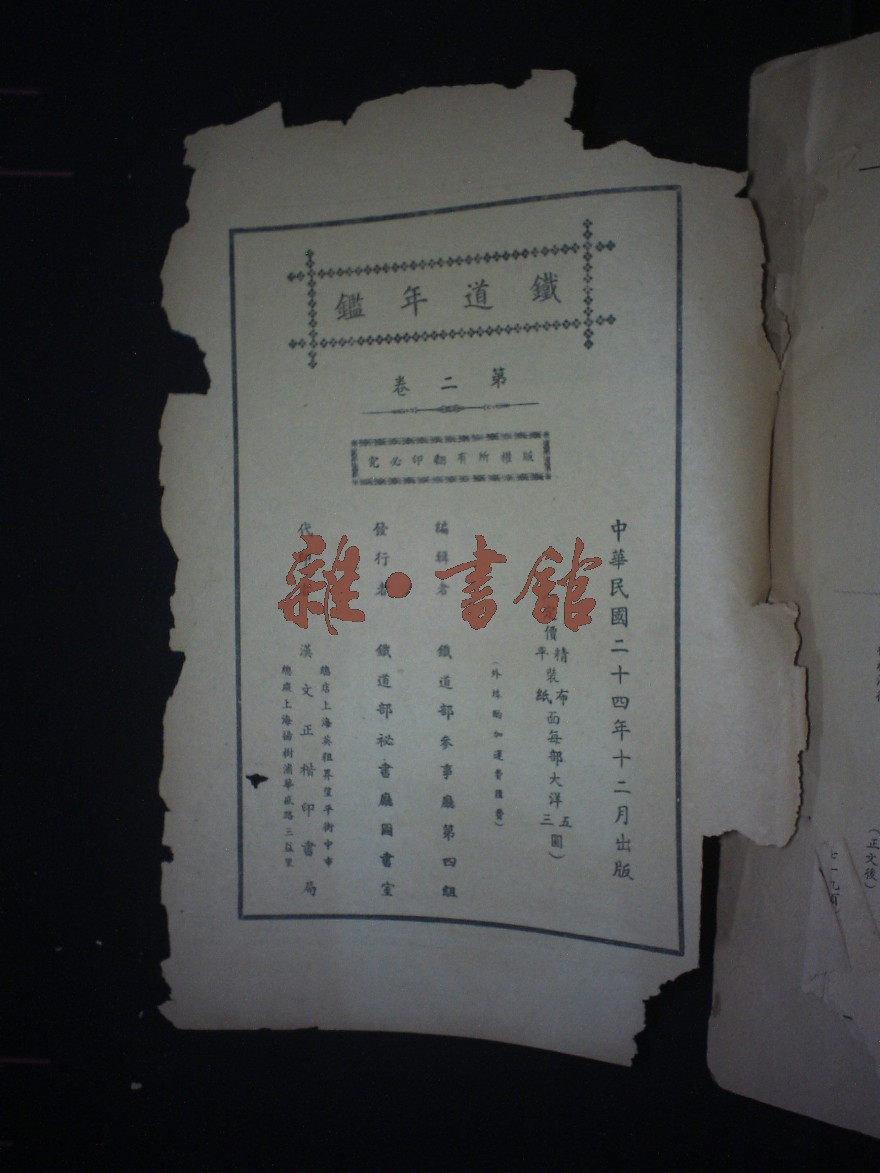 鐵道年鑑
第二卷
版權所有翻印必究
中華民國二十四年十二月出版
定價
精裝布面每部大洋五圓
平裝紙面每部大洋三圓
(外埠酌加運費匯費)
編輯者 鐵道部參事廳第四組
發行者 鐵道部祕書廳圖書室
代印者 漢文正楷印書局
總店上海英租界望平街中市
總廠上海
路三益里
雜·書館
(正文後)